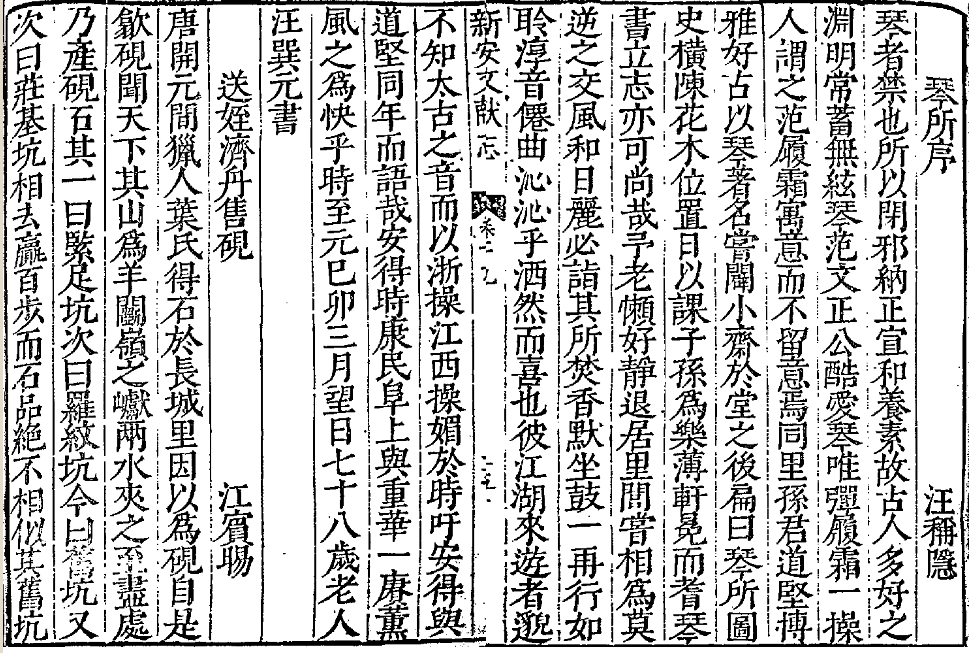 琴所序 汪稱隱
琴者禁也所以閉邪納正宣和養素故古人多好之
淵明常蓄無絃琴范文正公酷愛琴唯彈履霜一操
人謂之范履霜寓意而不留意焉同里孫君道堅博
雅好古以琴著名嘗闢小齋於堂之後扁曰琴所圖
史橫陳花木位置日以課子孫為樂薄軒冕而耆琴
書立志亦可尚哉予老懶好靜退居里閭嘗相為莫
逆之交風和日麗必詣其所焚香默坐鼓一再行如
聆淳音僊曲沁沁乎洒然而喜也彼江湖來遊者邈
新安文獻志 卷十九
不知太古之音而以浙操江西操媚於時吁安得與
道堅同年而語哉安得時康民阜上與重華一賡薰
風之為快乎時至元己卯三月望日七十八歲老人
汪巽元書
送姪濟舟售硯 江賓暘
唐開元間獵人葉氏得石於長城里因以為硯自是
歙硯聞天下其山為羊鬬嶺之巘兩水夾之至盡處
乃產硯石其一曰緊足坑次曰羅紋坑今曰舊坑又
次曰莊基坑相去贏百步而石品絕不相似其舊坑